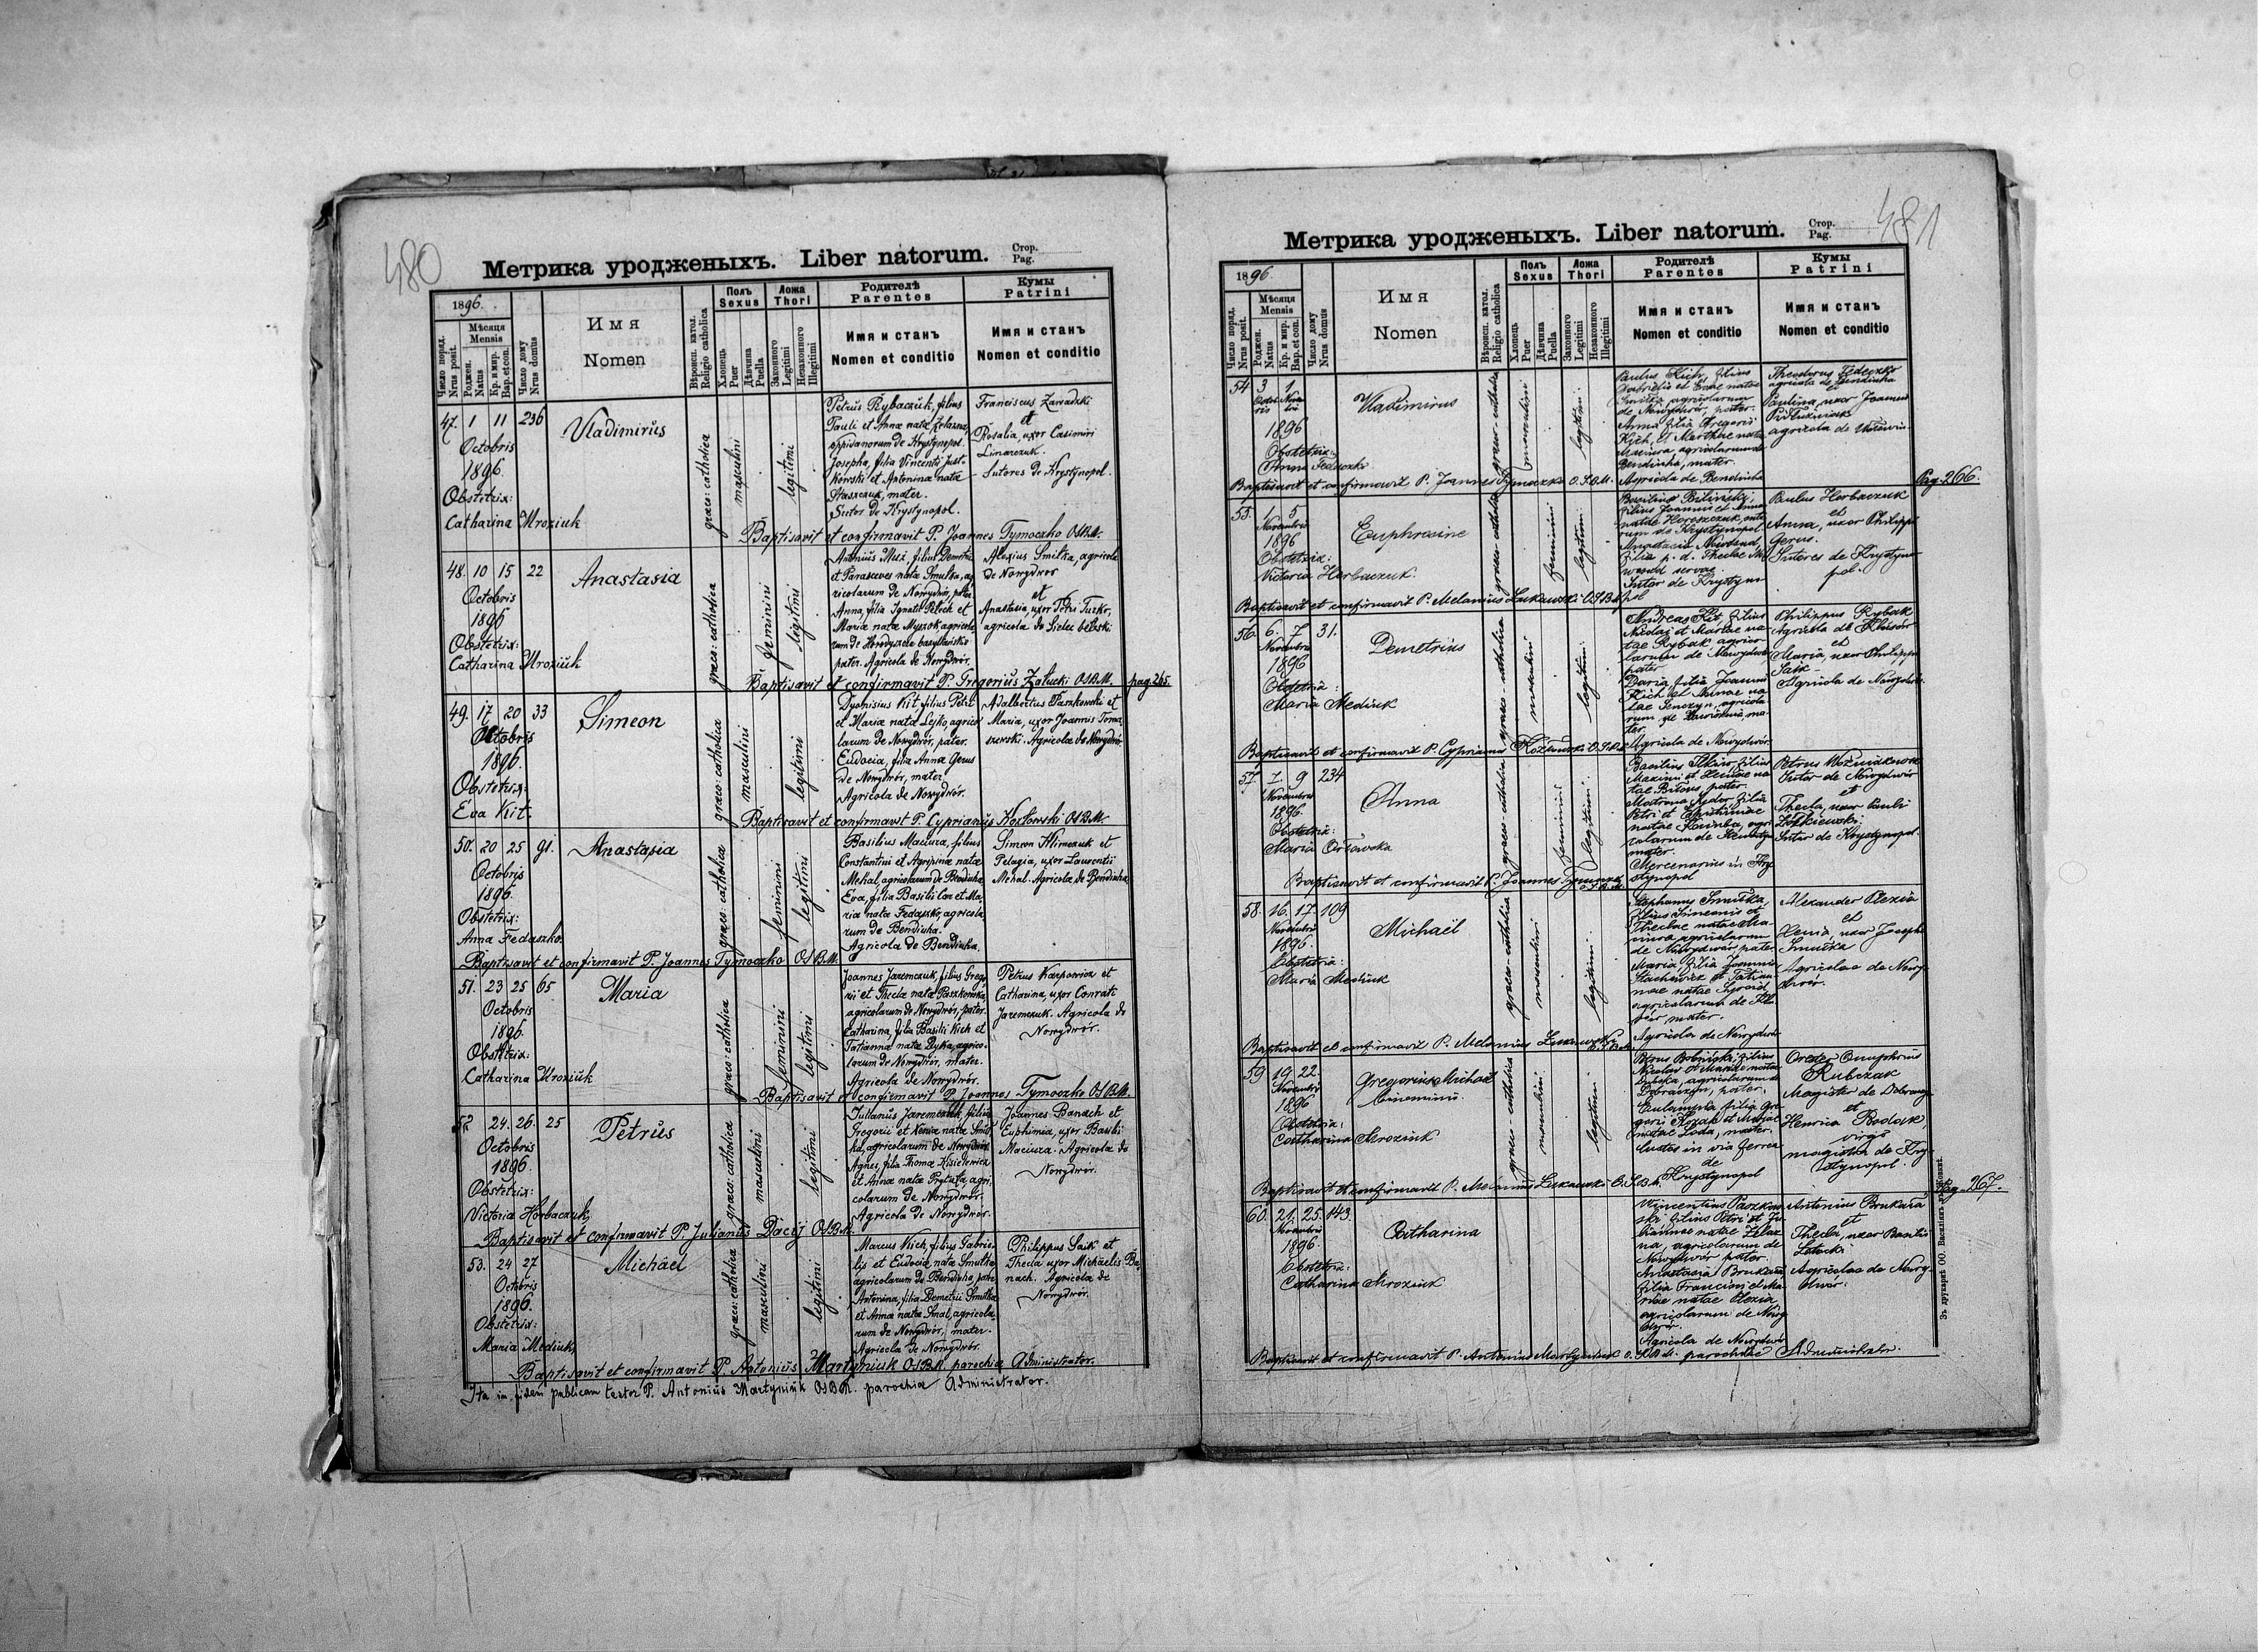 480
Метрика уродженыхъ. Liber natorum.
Стор.
Pag.
1896.
Число поряд.
Nrus posit.
Мѣсяця
Mensis
Роджен.
Natus
Кр. и мир.
Bap. et con.
Число дому
Nrus domus
Имя
Nomen
Вѣроисп. катол.
Religio catholica
Полъ
Sexus
Хлопець
Puer
Дѣвчина
Puella
Ложа
Thori
Законного
Legitimi
Незаконного
Illegitimi
Родителѣ
Parentes
Имя и станъ
Nomen et conditio
Кумы
Patrini
Имя и станъ
Nomen et conditio
47. 1 11 236
Octobris
1896
Obstetrix:
Catharina Mroziuk
Vladimirus
graeco: catholica
masculini
legitimi
Petrus Rybaczuk, filius
Pauli et Annae natae Zelazna,
oppidanorum de Krystynopol.
Josepha, filia Vincentii Just-
kowski et Antoninae natae
Staszczuk, mater.
Sutor de Krystynopol.
Franciscus Zawadzki
et
Rosalia, uxor Casimiri
Linarczuk.
Sutores de Krystynopol.
Baptisavit et confirmavit P. Joannes Tymoczko OSBM.
48. 10 15 22
Octobris
1896
Obstetrix:
Catharina Mroziuk
Anastasia
graeco: catholica
feminini
legitimi
Antonius Muz, filius Demetrii
et Parasceves natae Smulka, ag
ricolarum de Nowydwór, pater
Anna, filia Ignatii Pelech et
Mariae natae Myszok, agricola
rum de Horodyszcze bazyliańskie
pater. Agricola de Nowydwór.
Alexius Smulka, agricola
de Nowydwor
et
Anastasia, uxor Petri Turko,
agricola de Sielec bełzski.
Baptisavit et confirmavit P. Gregorius Załucki OSBM.
pag. 265.
49. 17 20 33
Octobris
1896.
Obstetrix:
Eva Kit.
Simeon
graeco: catholica
masculini
legitimi
Dyonisius Kit, filius Petri
et Mariae natae Lejko, agrico
larum de Nowydwór, pater.
Eudocia, filia Annae Gerus
de Nowydwór, mater
Agricola de Nowydwór.
Adalbertus Paszkowski et
Maria, uxor Joannis Toma
szewski. Agricolae de Nowydwór
Baptisavit et confirmavit P. Cyprianus Kozłowski OSBM.
50. 20 25 91.
Octobris
1896.
Obstetrix:
Anna Fedaszko.
Anastasia
graeco: catholica
feminini
legitimi
Basilius Maciura, filius
Constantini et Agripinae natae
Mehal, agricolarum de Bendiuha
Eva, filia Basilii Can et Ma,
riae natae Fedaszko, agricola
rum de Bendiuha.
Agricola de Bendiuha.
Simeon Klimczuk et
Pelagia, uxor Laurentii
Mehal. Agricolae de Bendiuha
Baptisavit et confirmavit P. Joannes Tymoczko OSBM.
51. 23 25 65
Octobris
1896.
Obstetrix:
Catharina Mroziuk
Maria
graeco: catholica
feminini
legitimi
Joannes Jaremczuk, filius Grego
rii et Theclae natae Paszkowska,
agricolarum de Nowydwór, pater.
Catharina, filia Basilii Kich et
Tatiannae natae Dyka, agrico-
larum de Nowydwór, mater.
Agricola de Nowydwór.
Petrus Karpowicz et
Catharina, uxor Conrati
Jaremczuk. Agricola de
Nowydwór.
Baptisavit et confirmavit P. Joannes Tymoczko OSBM.
52 24. 26. 25
Octobris
1896.
Obstetrix:
Victoria Horbaczuk,
Petrus
graeco: catholica
masculini
legitimi
Julianus Jaremczuk, filius
Gregorii et Xeniae natae Smul
ka, agricolarum de Nowydwór
Agnes, filia Thomae Kisielewicz
et Annae natae Prytuła, agri,
colarum de Nowydwór.
Agricola de Nowydwór.
Joannes Banach et
Euphimia, uxor Basilii
Maciura. Agricola de
Nowydwór.
Baptisavit et confirmavit P. Julianus Dacij OSBM.
53. 24 27
Octobris
1896.
Obstetrix:
Maria Mediuk,
Michael
graeco: catholica
masculini
legitimi
Marcus Kich, filius Gabrie-
lis et Eudociae natae Smulka
agricolarum de Bendiuha, pater
Antonina, filia Demetrii Smulka
et Annae natae Smal, agricola,
rum de Nowydwór, mater.
Agricola de Nowydwór.
Philippus Saik et
Thecla uxor Michaelis Ba,
nach. Agricolae de
Nowydwór.
Baptisavit et confirmavit P. Antonius Martyniuk OSBM. parochiae Administrator.
Ita in fidem publicam testor P. Antonius Martyniuk OSBM. parochiae Administrator.
481
Метрика уродженыхъ. Liber natorum.
Стор.
Pag.
1896.
Число поряд.
Nrus posit.
Мѣсяця
Mensis
Роджен.
Natus
Кр. и мир.
Bap. et con.
Число дому
Nrus domus
Имя
Nomen
Вѣроисп. катол.
Religio catholica
Полъ
Sexus
Хлопець
Puer
Дѣвчина
Puella
Ложа
Thori
Законного
Legitimi
Незаконного
Illegitimi
Родителѣ
Parentes
Имя и станъ
Nomen et conditio
Кумы
Patrini
Имя и станъ
Nomen et conditio
54 3 1
1896
Obstetrix:
Anna Fedaszko
Vladimirus
graeco-catholica
masculini
legitimi.
Paulus Kich, filius
Gabrielis et Evae natae
Smulka, agricolarum
de Nowydwór, pater.
Anna filia Gregorii
Kich, et Marthae natae
Maciura, agricolarum de
Bendiuha, mater.
Agricola de Bendiuha
Theodorus Fedeczko
agricola de Bendiuha
et
Paulina, uxor Joannis
agricola de
Baptisavit et confirmavit P. Joannes Tymoczko O.S.B.M.
Pag. 266.
55. 1. 5
Novembris
1896
Obstetrix:
Victoria Horbaczuk.
Euphrosine
graeco-catholica
feminini
legitimi.
Basilius Bilinski,
filius Joannis et Annae
natae
rum de Krystynopol
Anastasia
filia p. d. Theclae
servae
Sutor de Krystyno
pol
Paulus Horbaczuk
et
Anna, uxor Philippi
Gerus.
Sutores de Krystyno
pol.
Baptisavit et confirmavit P. Melanius Łukawski O.S.B.M.
56. 6. 7 31.
Novembris
1896
Obstetrix:
Maria Mediuk
Demetrius
graeco-catholica
masculini
legitimi.
Andreas Kit, filius
Nicolai et Mariae na-
tae Rybak agrico-
larum de Nowydwór,
pater
Daria, filia Joannis
Kich et Annae na
tae Senczyn, agricola
rum de ma-
ter.
Agricola de Nowydwór.
Philippus Rybak
Agricola de
et
Maria, uxor Philippi
Saik
Agricola de Nowydwór.
Baptisavit et confirmavit P. Cyprianus Kozłowski O.S.B.M.
57. 7. 9 234
Novembris
1896.
Obstetrix:
Maria Orłowska
Anna
graeco-catholica
feminini
legitimi.
Basilius Ilkiw, filius
Maximi et Xeniae na
tae Bitous, pater.
Matrona Feder, filia
Petri et Christinae
natae agri
colarum de
mater.
Mercenarius in Kry
stynopol
Petrus Woźniakowski
Sutor de Nowydwór
et
Thecla, uxor Pauli
Żółkiewski.
Sutor de Krystynopol.
Baptisavit et confirmavit P. Joannes Tymoczko O.S.B.M.
58. 16. 17. 109
Novembris
1896.
Obstetrix:
Maria Mediuk
Michaël
graeco-catholica
masculini
legitimi.
Stephanus Smulka,
filius Simeonis et
Theclae natae Ma-
ciura agricolarum
de Nowydwór, pater
Maria, filia Joannis
Stachiewicz et Tatian-
nae natae
agricolarum de
mater.
Agricola de Nowydwór
Alexander Olexia
et
Xenia, uxor Josephi
Smulka
Agricolae de Nowy-
dwór.
Baptisavit et confirmavit P. Melanius Łukawski O.S.B.M.
59 19. 22.
Novembris
1896
Obstetrix:
Catharina Mroziuk
Gregorius Michael
binominis
graeco-catholica
masculini
legitimi
Petrus Bobriński, filius
Nicolai et Mariae natae
agricolarum de
Dobraczyn, pater.
filia Gre
gorii Kozak et Mariae
natae Loda, mater.
Custos in via ferrea
de
Krystynopol
Orest Onuphrius
Rubczak
Magister de Dobraczyn
et
Henrica Bodak,
virgo
magistra de Kry
stynopol.
Baptisavit et confirmavit P. Melanius Łukawski O.S.B.M.
Pag. 267.
60. 21. 25. 143.
Novembris
1896.
Obstetrix:
Catharina Mroziuk
Catharina
Vincentius Paszkow
ski filius Petri et Ju
liannae natae Zelaz
na, agricolarum de
Nowydwór pater.
Anastasia Brukara
filia Francisci et Ma-
riae natae Olexia
agricolarum de Nowy
dwór.
Agricola de Nowydwór
Antonius Brukara
et
Thecla, uxor Basilii
Łotocki
Agricolae de Nowy-
dwór.
Baptisavit et confirmavit P. Antonius Martyniuk O.S.B.M. parochiae Administrator.
Зъ друкарнѣ ОО. Василіянъ въ Жовквѣ.